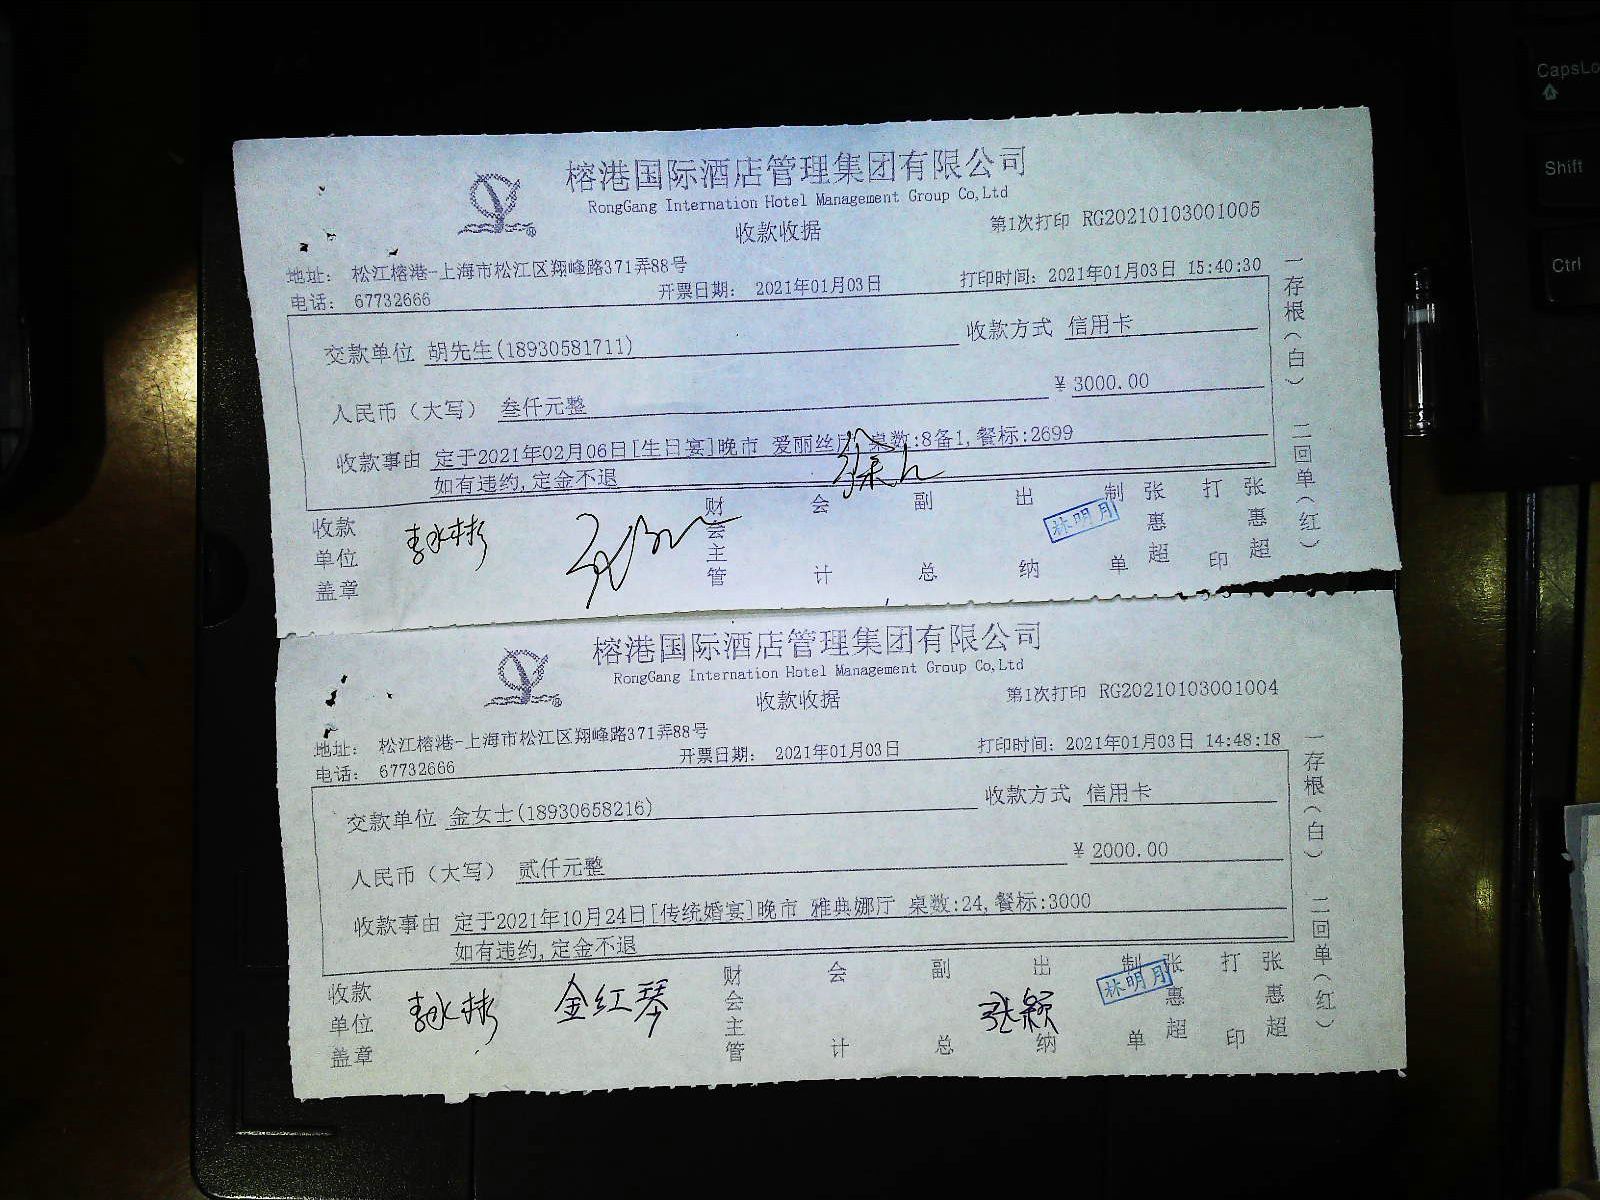 榕港国际酒店管理集团有限公司
RongGang International Hotel Management Group Co,Ltd
收款收据
第1次打印 RG20210103001005
地址: 松江榕港-上海市松江区翔峰路371弄88号
电话: 67732666 开票日期: 2021年01月03日 打印时间: 2021年01月03日 15:40:30
交款单位 胡先生(18930581711) 收款方式 信用卡
人民币（大写） 叁仟元整 ¥ 3000.00
收款事由 定于2021年02月06日[生日宴]晚市 爱丽丝厅 桌数:8备1,餐标:2699
如有违约,定金不退
收款单位盖章 财会主管 会计 副总 出纳 制单 张惠超 打印 张惠超
林明月
一存根(白) 二回单(红)
榕港国际酒店管理集团有限公司
RongGang International Hotel Management Group Co,Ltd
收款收据
第1次打印 RG20210103001004
地址: 松江榕港-上海市松江区翔峰路371弄88号
电话: 67732666 开票日期: 2021年01月03日 打印时间: 2021年01月03日 14:48:18
交款单位 金女士(18930658216) 收款方式 信用卡
人民币（大写） 贰仟元整 ¥ 2000.00
收款事由 定于2021年10月24日[传统婚宴]晚市 雅典娜厅 桌数:24,餐标:3000
如有违约,定金不退
收款单位盖章 金红琴 财会主管 会计 副总 出纳 张颖 制单 张惠超 打印 张惠超
林明月
一存根(白) 二回单(红)
CapsLo
Shift
Ctrl